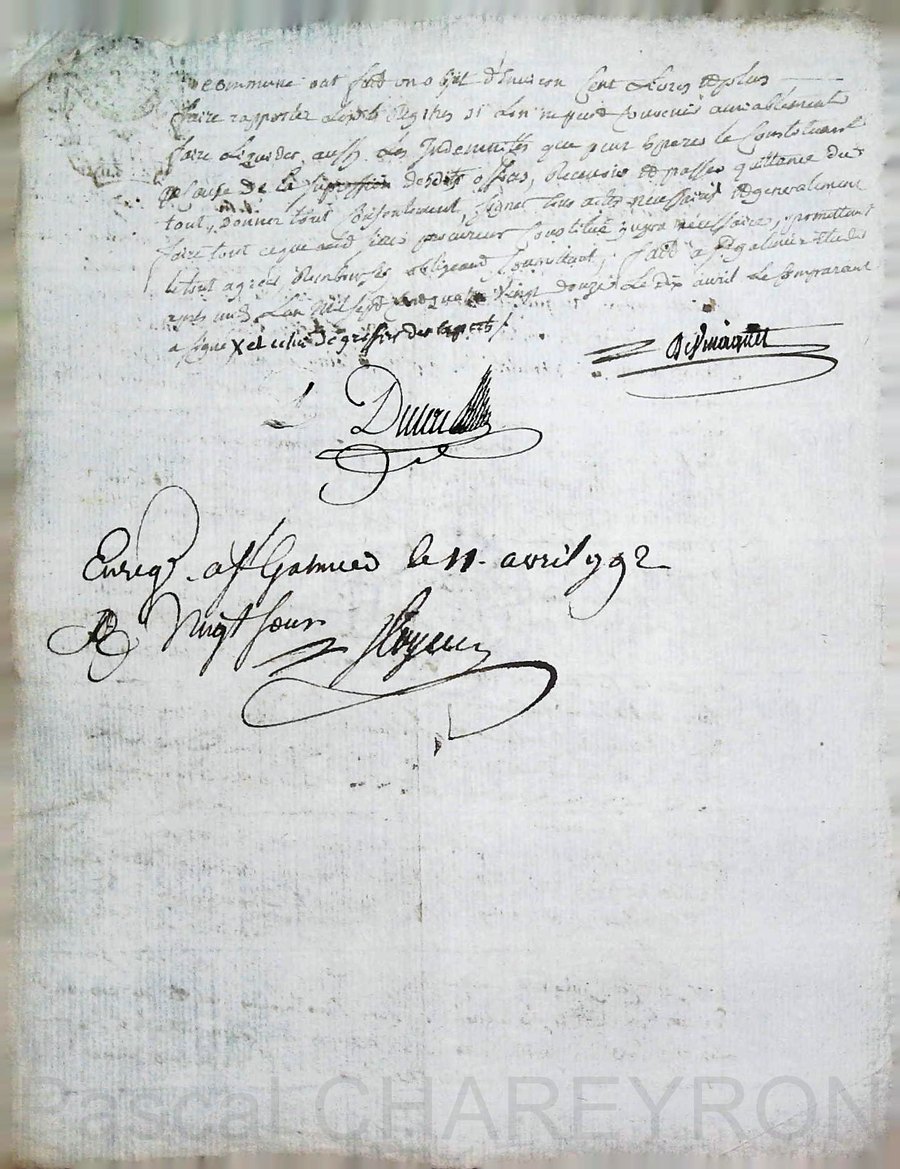 commune ont fait un objet d'environ cent Livres de plus
faire rapporter Lesdits Registres si Lon ne peut convenir amiablement
faire Liquider aussi Les Indemnités que peut Esperer le Constituant
a cause de la supression desdits offices, Recevoir et passer quittance du
tout, donner tout Consentement, signer tous actes nécessaires et generalement
faire tout ce que led sieur procureur Constitué jugera nécessaire, promettant
le tout agréer obligeant fait a St galmier Etude
apres midi L'an mil sept cent quatre vingt douze Le dix avril Le Comparant
a signé X et celui de greffier des
Enregr. a St Galmier le 11. avril 792
R Vingt sous
Pascal CHAREYRON